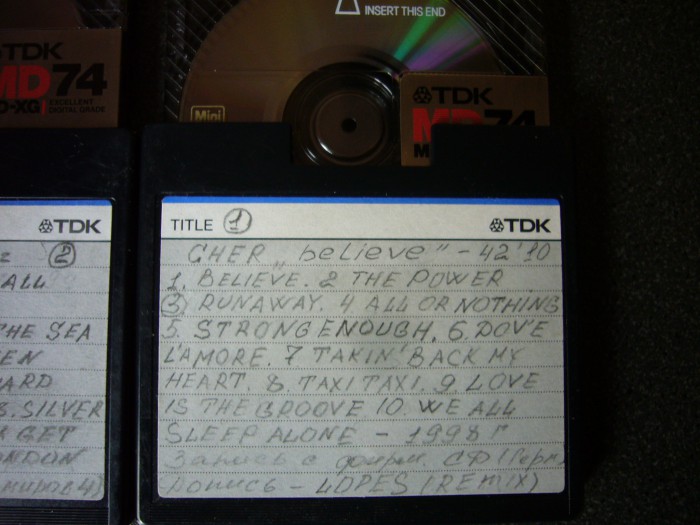 INSERT THIS END
TDK
MD 74
D-XG EXCELLENT DIGITAL GRADE
Mini
TDK
MD 74
TDK
2
ALL
THE SEA
EN
ARD
8. SILVER
GET
ONDON
TITLE 1 TDK
CHER „believe" - 42'10
1. BELIEVE. 2 THE POWER
3 RUNAWAY. 4 ALL OR NOTHING
5. STRONG ENOUGH. 6. DOV'E
L'AMORE. 7 TAKIN' BACK MY
HEART. 8. TAXI TAXI. 9 LOVE
IS THE GROOVE 10. WE ALL
SLEEP ALONE - 1998 Г
Запись с фирм. CD (Герм)
Допись - LOPES (REMIX)